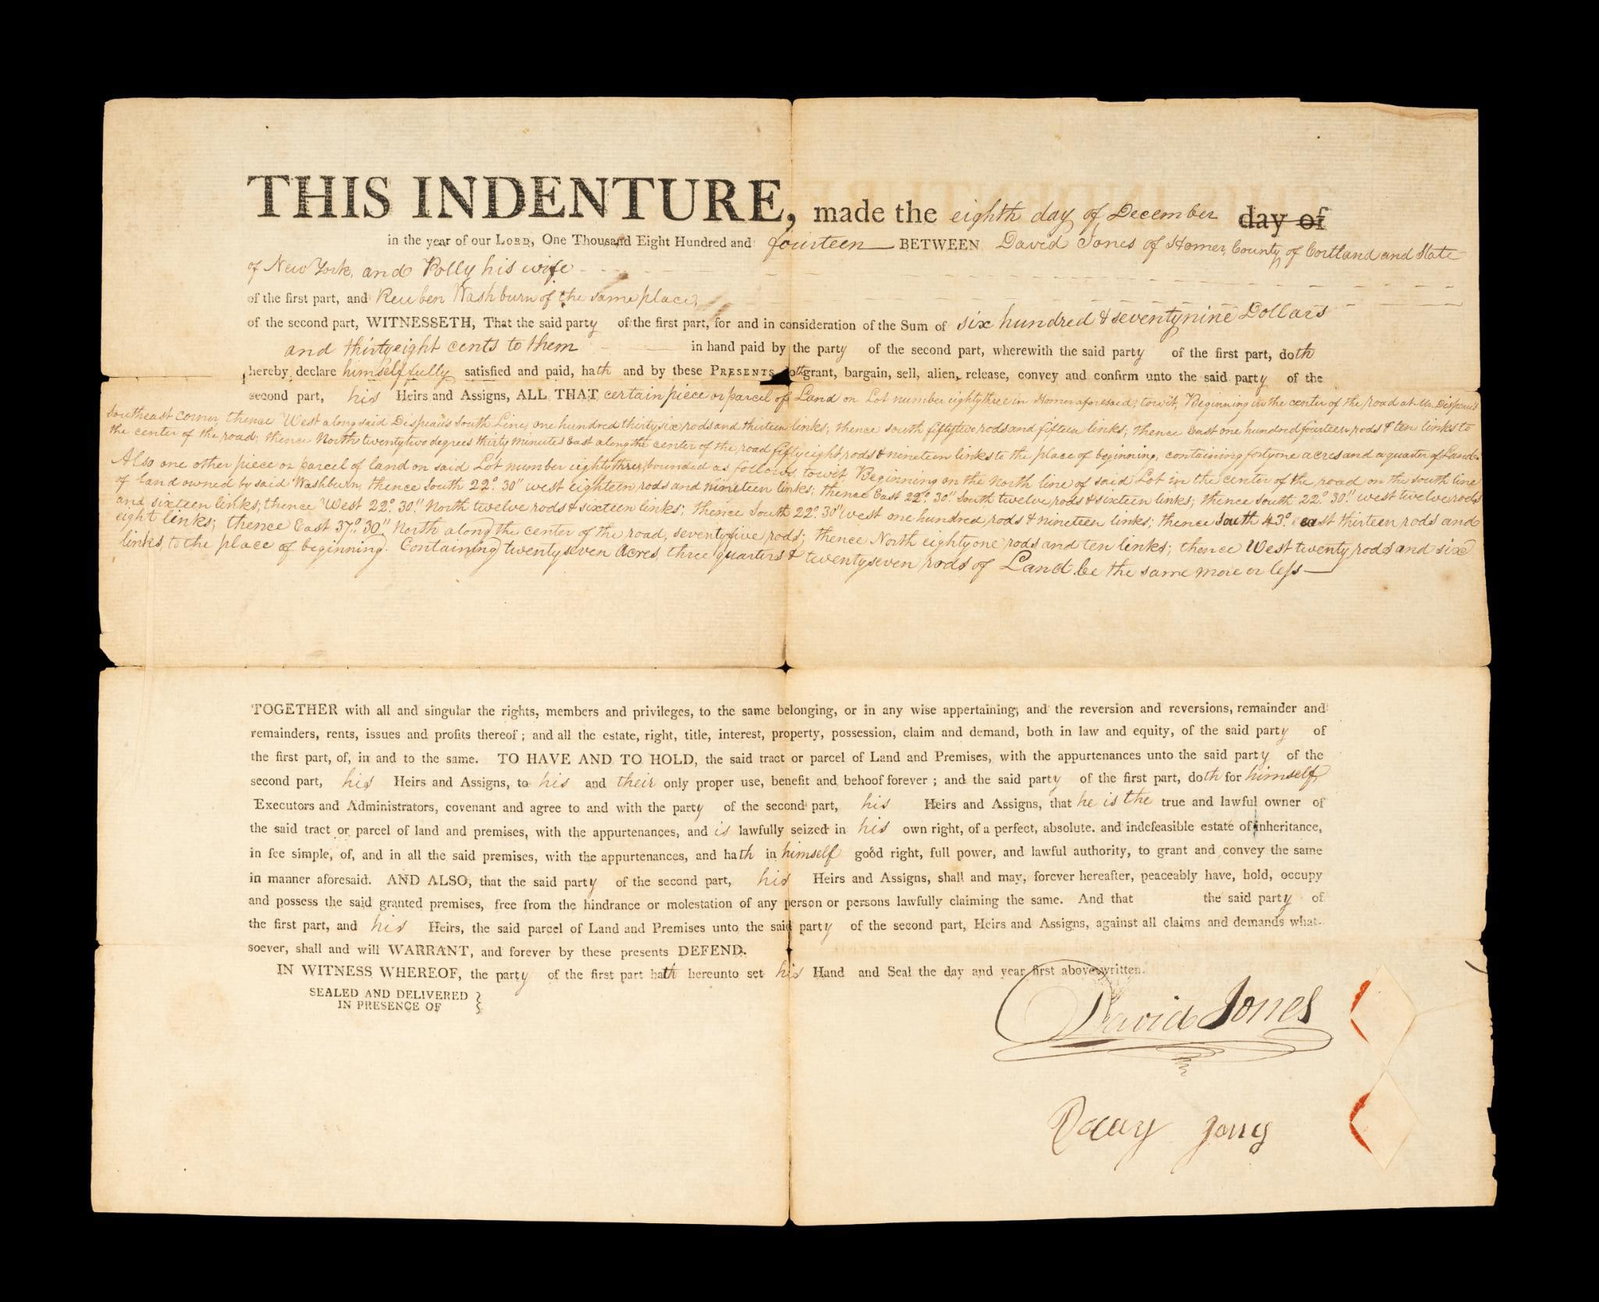 THIS INDENTURE, made the eighth day of December day of
in the year of our LORD, One Thousand Eight Hundred and fourteen BETWEEN David Jones of Homer, County of Cortland and State
of New York, and Polly his wife
of the first part, and Reuben Washburn of the same place,
of the second part, WITNESSETH, That the said party of the first part, for and in consideration of the Sum of six hundred & seventynine Dollars
and thirtyeight cents to them in hand paid by the party of the second part, wherewith the said party of the first part, doth
hereby declare himself fully satisfied and paid, hath and by these PRESENTS doth grant, bargain, sell, alien, release, convey and confirm unto the said party of the
second part, his Heirs and Assigns, ALL THAT certain piece or parcel of Land on Lot number eightythree in Homer aforesaid; towit, Beginning in the center of the road at Mr.
Southeast corner, thence West along said South Line, one hundred thirtysix rods and thirteen links; thence south fiftytwo rods and fifteen links; thence East one hundred fourteen rods & ten links to
the center of the road; thence North twentytwo degrees thirty minutes East along the center of the road fiftyeight rods & nineteen links to the place of beginning, containing fortyone acres and a quarter of Land.
Also one other piece or parcel of land on said Lot number eightythree, bounded as follows, towit Beginning on the North line of said Lot in the center of the road on the south line
of land owned by said Washburn, thence South 22° 30" west eighteen rods and nineteen links; thence East 22° 30" South twelve rods & sixteen links; thence South 22° 30" west twelve rods
and sixteen links; thence West 22° 30" North twelve rods & sixteen links; thence South 22° 30" West one hundred rods & nineteen links; thence South 43° east thirteen rods and
eight links; thence East 37° 30" North along the center of the road, seventyfive rods; thence North eightyone rods and ten links; thence West twenty rods and six
links, to the place of beginning. Containing twentyseven Acres, three quarters & twentyseven rods of Land be the same more or less
TOGETHER with all and singular the rights, members and privileges, to the same belonging, or in any wise appertaining; and the reversion and reversions, remainder and
remainders, rents, issues and profits thereof; and all the estate, right, title, interest, property, possession, claim and demand, both in law and equity, of the said party of
the first part, of, in and to the same. TO HAVE AND TO HOLD, the said tract or parcel of Land and Premises, with the appurtenances unto the said party of the
second part, his Heirs and Assigns, to his and their only proper use, benefit and behoof forever; and the said party of the first part, doth for himself
Executors and Administrators, covenant and agree to and with the party of the second part, his Heirs and Assigns, that he is the true and lawful owner of
the said tract or parcel of land and premises, with the appurtenances, and is lawfully seized in his own right, of a perfect, absolute. and indefeasible estate of inheritance,
in fee simple, of, and in all the said premises, with the appurtenances, and hath in himself good right, full power, and lawful authority, to grant and convey the same
in manner aforesaid. AND ALSO, that the said party of the second part, his Heirs and Assigns, shall and may, forever hereafter, peaceably have, hold, occupy
and possess the said granted premises, free from the hindrance or molestation of any person or persons lawfully claiming the same. And that the said party of
the first part, and his Heirs, the said parcel of Land and Premises unto the said party of the second part, Heirs and Assigns, against all claims and demands what-
soever, shall and will WARRANT, and forever by these presents DEFEND.
IN WITNESS WHEREOF, the party of the first part hath hereunto set his Hand and Seal the day and year first above written.
SEALED AND DELIVERED
IN PRESENCE OF
David Jones